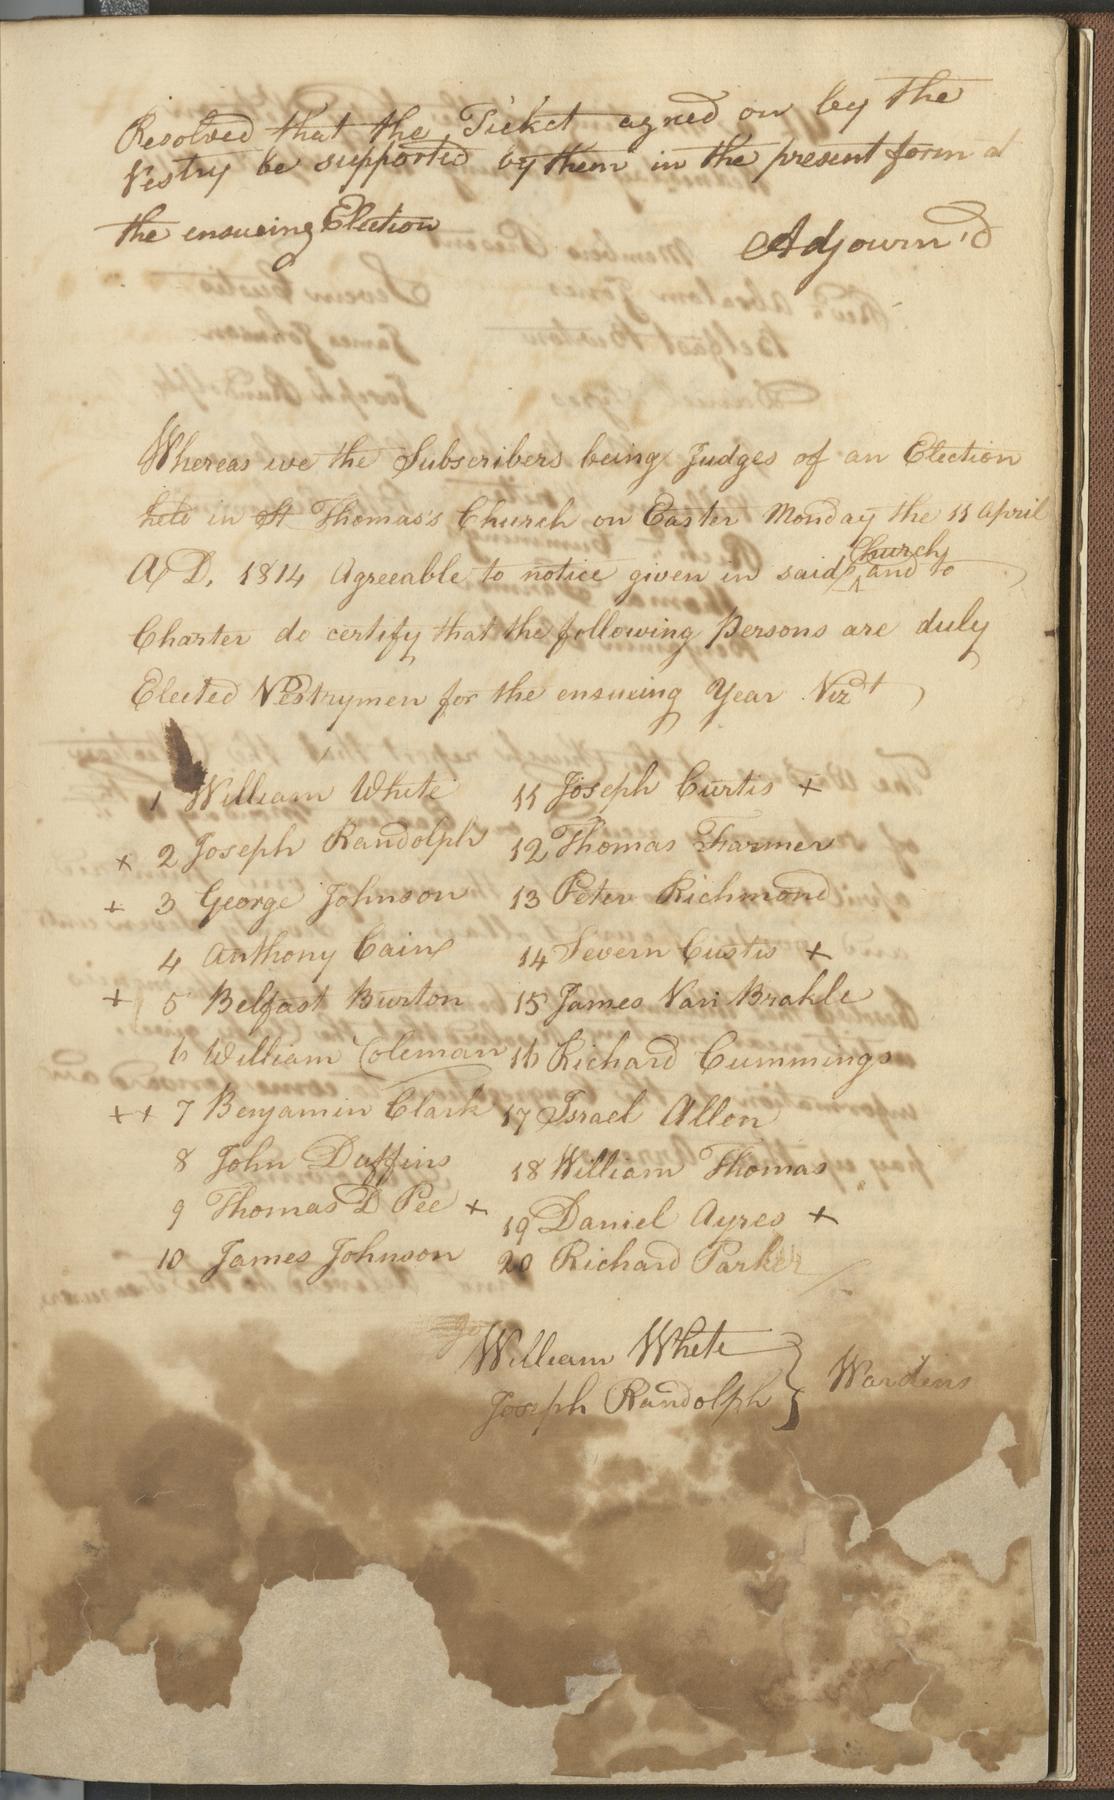 Resolved that the Ticket agreed on by the
Vestry be supported by them in the present form at
the ensueing Election
Adjourn'd
Whereas we the Subscribers being Judges of an Election
held in St Thomas's Church on Easter Monday the 11 April
A,D, 1814 Agreeable to notice given in said Church and to
Charter do certify that the following Persons are duly
Elected Vestrymen for the ensueing Year Vizt
1 William White
+ 2 Joseph Randolph
+ 3 George Johnson
4 Anthony Cain
+ 5 Belfast Burton
6 William Coleman
++ 7 Benjamin Clark
8 John Duffins
9 Thomas D Pee +
10 James Johnson
11 Joseph Curtis +
12 Thomas Farmer
13 Peter Richmond
14 Severn Custis +
15 James Van Brakle
16 Richard Cummings
17 Israel Allen
18 William Thomas
19 Daniel Ayres +
20 Richard Parker
William White
Joseph Randolph } Wardens